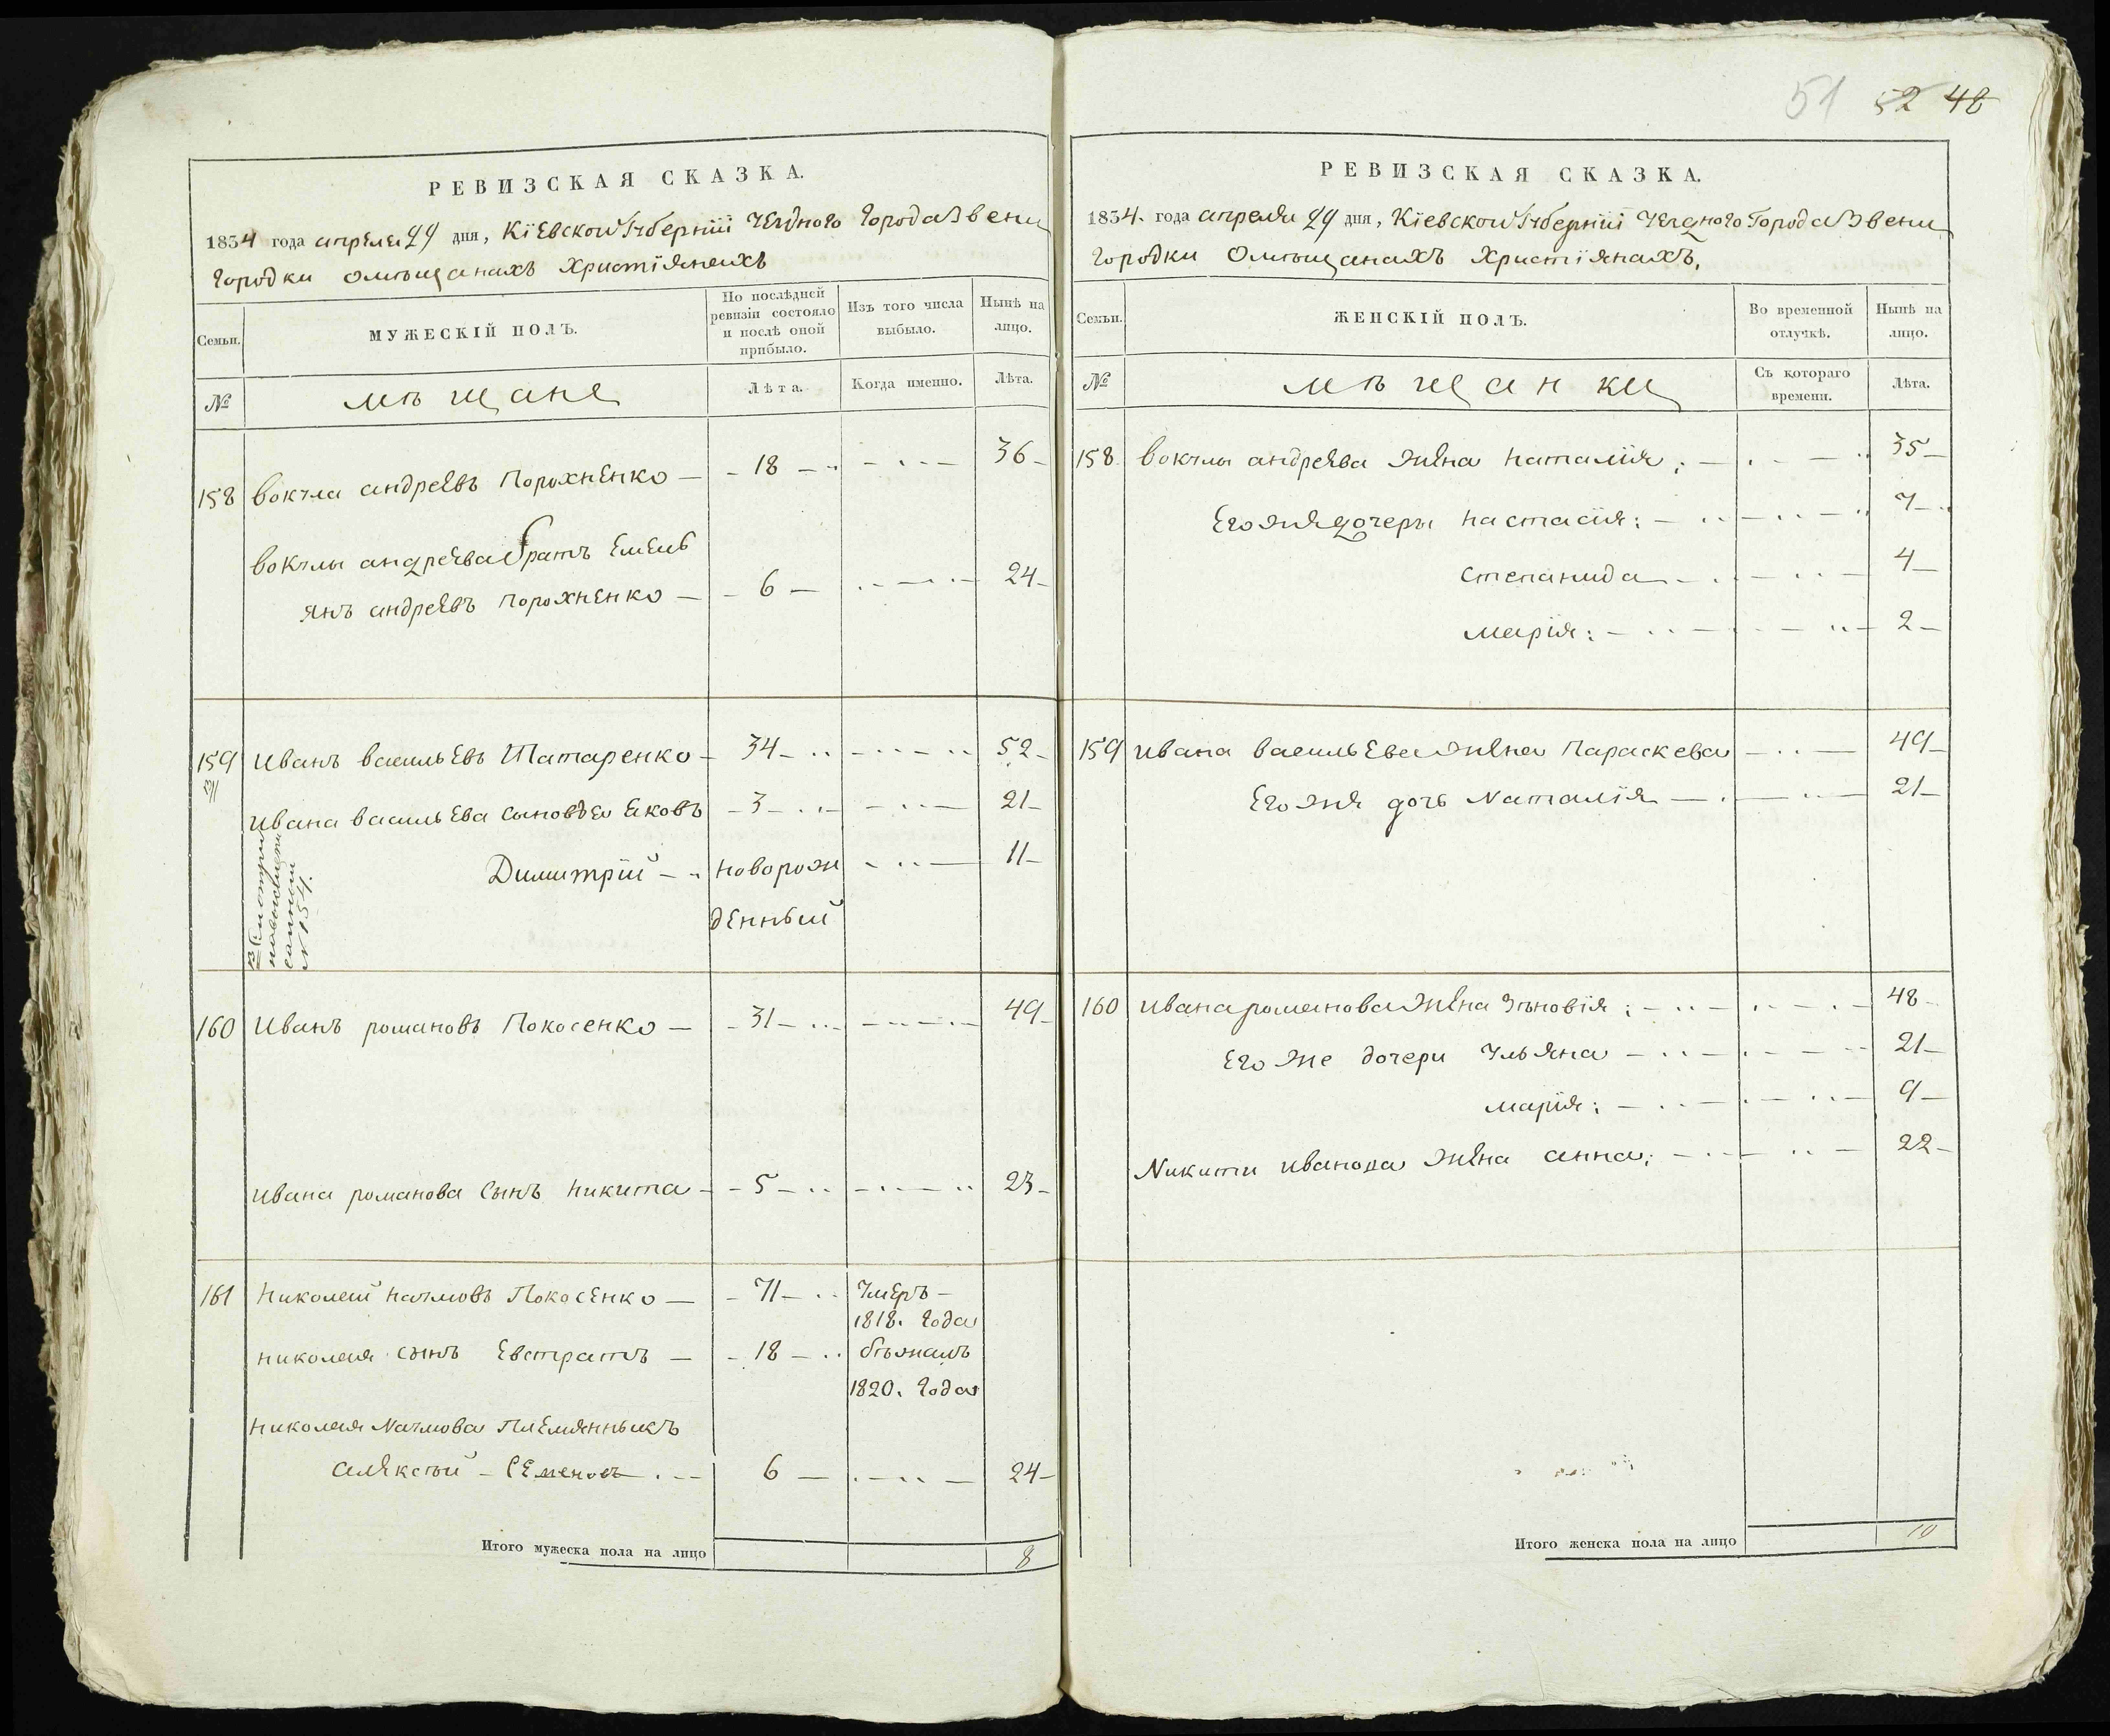 51 52 48
РЕВИЗСКАЯ СКАЗКА.
1834 года апрелея 29 дня, Кїевской Губернїи уезного города Звени
городки омѣщанахъ христїянахъ
Семьи.
МУЖЕСКІЙ ПОЛЪ.
По послѣдней
ревизіи состояло
и послѣ оной
прибыло.
Изъ того числа
выбыло.
Нынѣ на
лицо.
№
мѣщане
Лѣта.
Когда именно.
Лѣта.
158 вокула андреевъ Порохненко — 18 36
вокулы андреева братъ Емель
янъ андреевъ порохненко — 6 — 24
159 Иванъ васильевъ Татаренко 34 52
Ивана васильева сыновья Яковъ 3 21
Димитрїй новорож 11
денный
№ 154.
160 Иванъ романовъ Покосенко — 31 49
Ивана романова сынъ никита 5 23
161 николай наумовъ Покосенко — 71 Умеръ —
1818. года
николая сынъ Евстратъ — 18 бѣжалъ
1820. года
николая Наумова племянныкъ
алѣксѣй — Семеновъ 6 — 24
Итого мужеска пола на лицо 8
РЕВИЗСКАЯ СКАЗКА.
1834. года апреля 29 дня, Кїевской Губернїи уезного Города Звени
городки омѣщанахъ христїянахъ,
Семьи.
ЖЕНСКІЙ ПОЛЪ.
Во временной
отлучкѣ.
Нынѣ на
лицо.
№
мѣщанки
Съ котораго
времени.
Лѣта.
158 вокулы андреева жена наталїя; 35
Его жя дочеры настасїя: 7
степанида 4
марїя: 2
159 Ивана васильева жена Параскева 49
Его жя дочь Наталїя 21
160 Ивана романова жена Зѣновїя; 48
Его же дочери Ульяна 21
марїя; 9
Никити иванова жена анна; 22
Итого женска пола на лицо 10